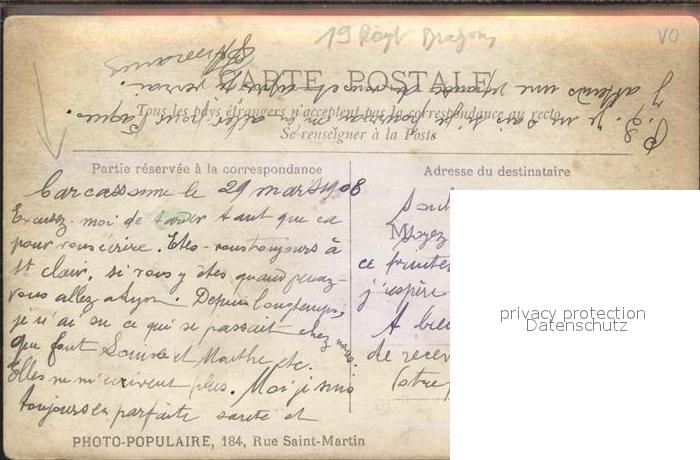 19 Regt Dragons
VO
CARTE POSTALE
Tous les pays étrangers n'acceptent pas la correspondance au recto
Se renseigner à la Poste
P.S. je ne sais si je pourrai en aller pour Pâques.
J'attends une réponse
Partie réservée à la correspondance
Adresse du destinataire
Carcassonne le 29 mars 1908
Excusez-moi de tarder tant que ca
pour vous écrire. Etes-vous toujours à
St Clair, si vous y êtes quand pensez-
vous allez a Lyon. Depuis longtemps,
je n'ai su ce qui se passait chez nous.
que font et Marthe etc.
Elles ne m'écrivent plus. Moi je suis
toujours en parfaite santé et
M
Soyez
ce printe
j'espère
A bie
de recev
Votre
privacy protection
Datenschutz
PHOTO-POPULAIRE, 184, Rue Saint-Martin